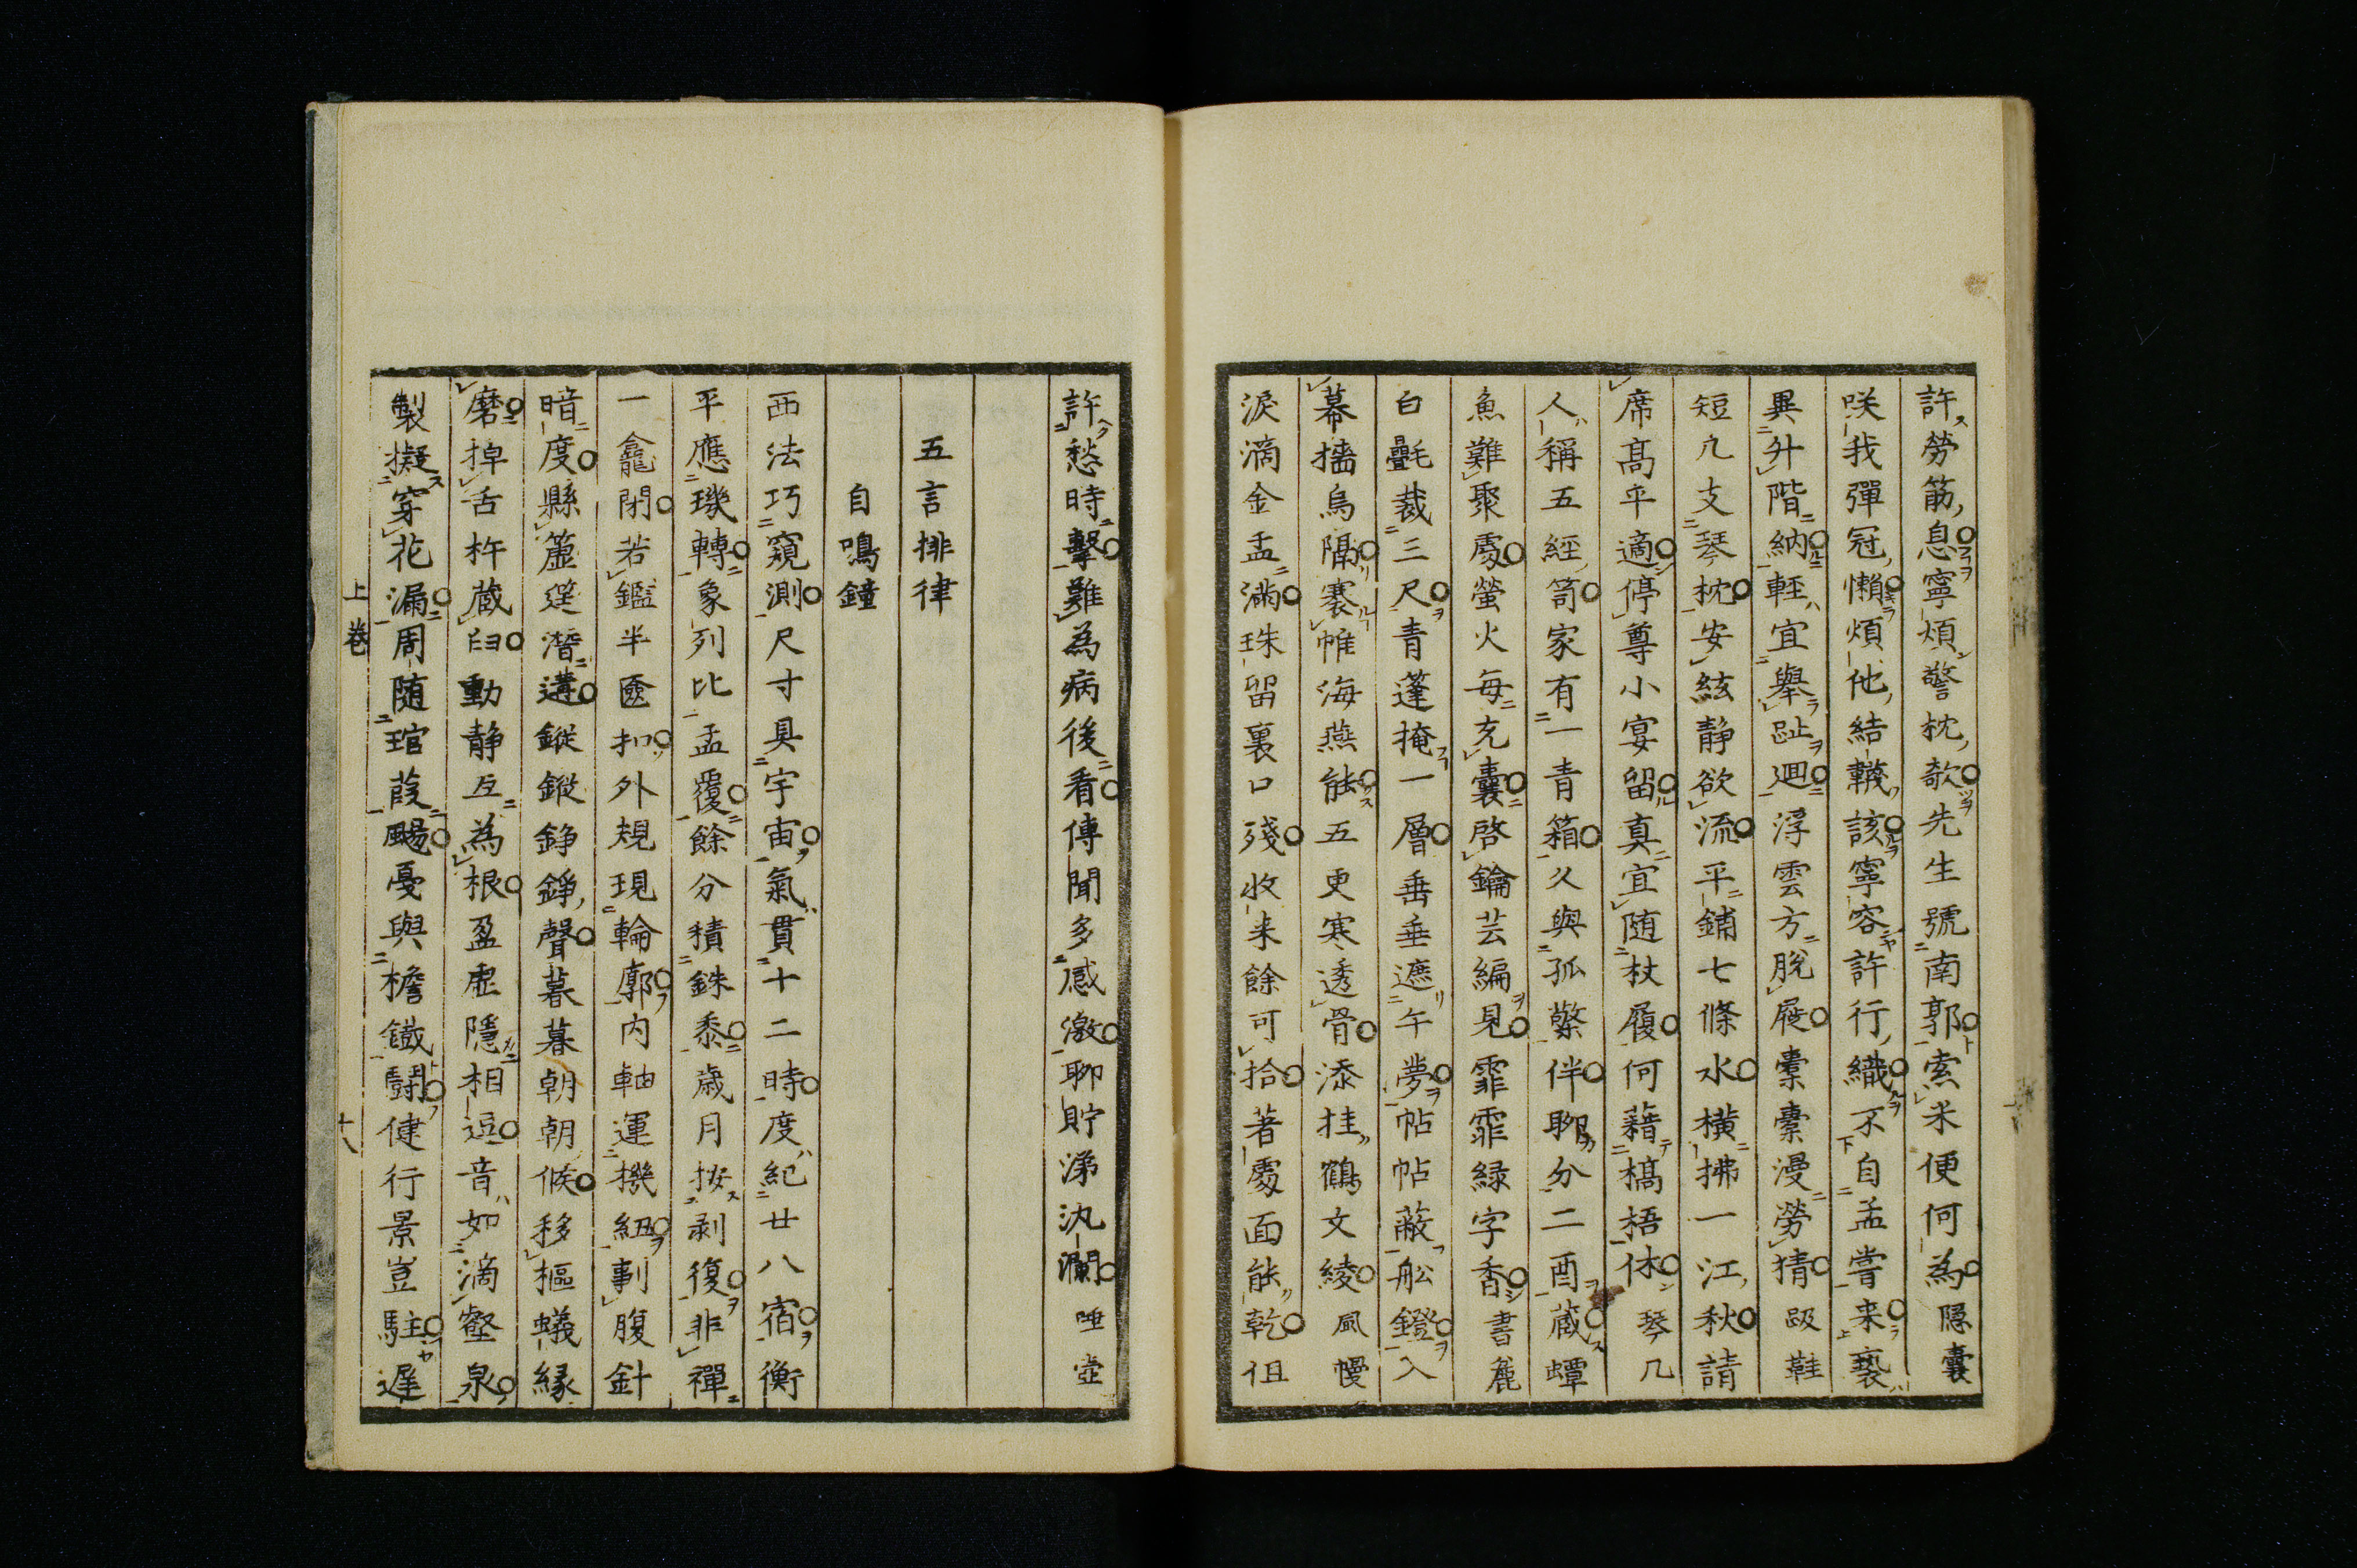 許勞筋息寧煩警枕欹先生號南郭索米便何為隠囊
咲我彈冠懶煩他結轙該寧容許行織不自孟嘗来褻
異升階納軽宜舉趾迴浮雲方脱屐橐橐漫勞猜 趿鞋
短几支琴枕安絃静欲流平鋪七條水横拂一江秋請
席髙平適停尊小宴留真宜随杖履何藉槁梧休 琴几
人稱五經笥家有一青箱久與孤檠伴聊分二酉蔵蟫
魚難聚處螢火每充囊啓鑰芸編見霏霏緑字香 書麓
白氎裁三尺青蓬掩一層垂垂遮午夢帖帖蔽舩鐙入
幕檣烏隔褰帷海燕能五更寒透骨添挂鶴文綾 風幔
淚滴金盂満珠留裏口殘收来餘可拾著處面能乾但
許愁時擊難為病後看傳聞多感激聊貯涕汍瀾 唾壺
五言排律
自鳴鐘
西法巧窺測尺寸具宇宙氣貫十二時度紀廿八宿衡
平應璣轉象列比盂覆餘分積銖黍歳月按剥復非禪
一龕閉若鑑半匳扣外規現輪廓内軸運機紐剚腹針
暗度縣簴筳潛遘鏦鏦錚錚聲暮暮朝朝候移樞蟻縁
磨掉舌杵蔵臼動静互為根盈虚隱相逗音如滴壑泉
製擬穿花漏周随琯葭颺憂與檐鐵鬪健行景豈駐遅
上巻
十八